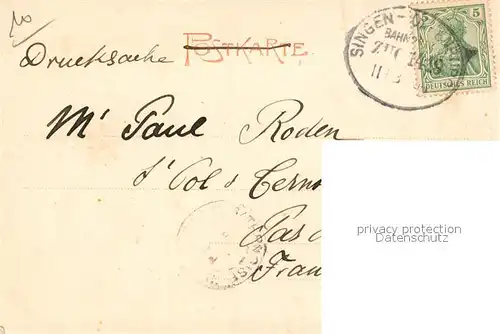 10
Drucksache
POSTKARTE.
SINGEN-
BAHNP
5
DEUTSCHES REICH
Mr Paul Roden
St Pol s Terno
Pas d
Fran
privacy protection
Datenschutz